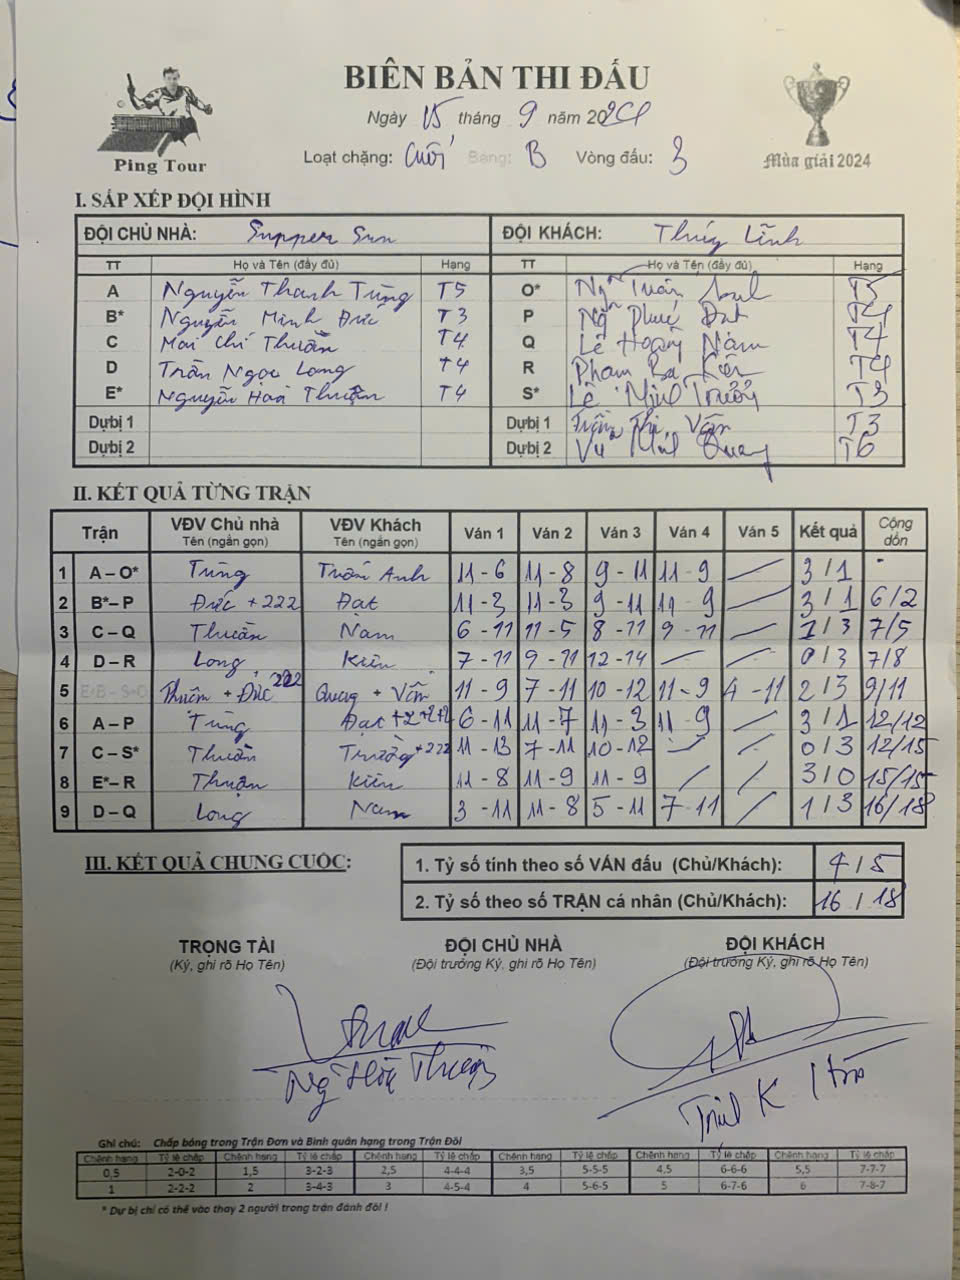 BIÊN BẢN THI ĐẤU
Ngày 15 tháng 9 năm 2024
Ping Tour
Loạt chặng: Cuối Bảng: B Vòng đấu: 3
Mùa giải 2024
I. SẮP XẾP ĐỘI HÌNH
ĐỘI CHỦ NHÀ: Supper Sun ĐỘI KHÁCH: Thúy Lĩnh
TT Họ và Tên (đầy đủ) Hạng TT Họ và Tên (đầy đủ) Hạng
A Nguyễn Thanh Tùng T5 O* Ngô Tuấn T5
B* Nguyễn Minh Đức T3 P Ngô Phúc Đạt T4
C Mai Chí Thuần T4 Q Lê Hoàng Nam T4
D Trần Ngọc Long T4 R Phạm Bá Kiên T4
E* Nguyễn Hoà Thuận T4 S* Lê Minh Trưởng T3
Dự bị 1 Dự bị 1 Trần Thị Vân T3
Dự bị 2 Dự bị 2 Vũ Minh Quang T6
II. KẾT QUẢ TỪNG TRẬN
Trận VĐV Chủ nhà Tên (ngắn gọn) VĐV Khách Tên (ngắn gọn) Ván 1 Ván 2 Ván 3 Ván 4 Ván 5 Kết quả Cộng dồn
1 A – O* Tùng Tuấn Anh 11 - 6 11 - 8 9 - 11 11 - 9 3 / 1 -
2 B* – P Đức + 222 Đạt 11 - 3 11 - 3 9 - 11 11 - 9 3 / 1 6/2
3 C – Q Thuần Nam 6 - 11 11 - 5 8 - 11 9 - 11 1 / 3 7/5
4 D – R Long Kiên 7 - 11 9 - 11 12 - 14 0 / 3 7/8
5 E+B – S+O Thuần + Đức 222 Quang + Vân 11 - 9 7 - 11 10 - 12 11 - 9 4 - 11 2 / 3 9/11
6 A – P Tùng Đạt +2+2+2 6 - 11 11 - 7 11 - 3 11 - 9 3 / 1 12/12
7 C – S* Thuần Trưởng +222 11 - 13 7 - 11 10 - 12 0 / 3 12/15
8 E* – R Thuận Kiên 11 - 8 11 - 9 11 - 9 3 / 0 15/15
9 D – Q Long Nam 3 - 11 11 - 8 5 - 11 7 - 11 1 / 3 16/18
III. KẾT QUẢ CHUNG CUỘC:
1. Tỷ số tính theo số VÁN đấu (Chủ/Khách): 4 / 5
2. Tỷ số theo số TRẬN cá nhân (Chủ/Khách): 16 / 18
TRỌNG TÀI ĐỘI CHỦ NHÀ ĐỘI KHÁCH
(Ký, ghi rõ Họ Tên) (Đội trưởng Ký, ghi rõ Họ Tên) (Đội trưởng Ký, ghi rõ Họ Tên)
Ng Hòa Thuận
Ghi chú: Chấp bóng trong Trận Đơn và Bình quân hạng trong Trận Đôi
Chênh hạng Tỷ lệ chấp Chênh hạng Tỷ lệ chấp Chênh hạng Tỷ lệ chấp Chênh hạng Tỷ lệ chấp Chênh hạng Tỷ lệ chấp Chênh hạng Tỷ lệ chấp
0,5 2-0-2 1,5 3-2-3 2,5 4-4-4 3,5 5-5-5 4,5 6-6-6 5,5 7-7-7
1 2-2-2 2 3-4-3 3 4-5-4 4 5-6-5 5 6-7-6 6 7-8-7
* Dự bị chỉ có thể vào thay 2 người trong trận đánh đôi !